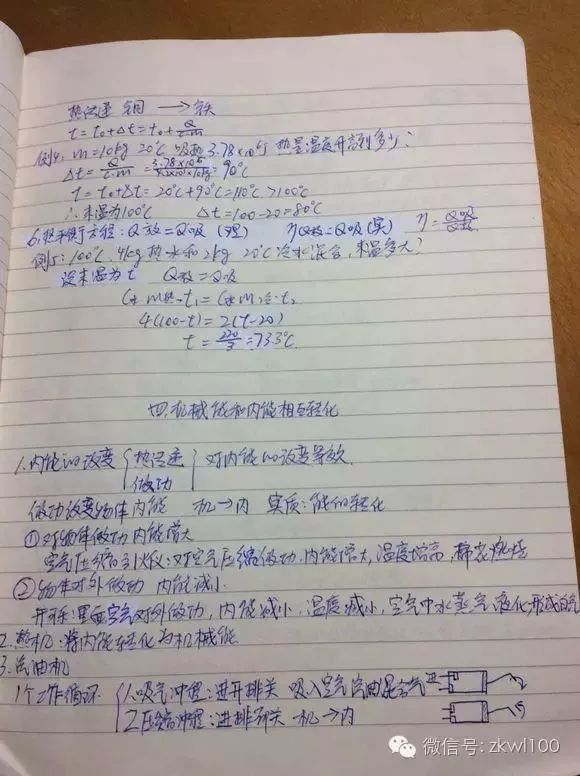 热传递 铜 → 铁
t = t₀+Δt = t₀ + Q/cm
例4. m=10kg 20℃ 吸热 3.78×10⁶J 热量温度升高到多少?
Δt = Q/c·m = 3.78×10⁶/4.2×10³×10kg = 90℃
t = t₀+Δt = 20℃+90℃ = 110℃ > 100℃
∴末温为100℃ Δt = 100-20 = 80℃
6.热平衡方程: Q放=Q吸 (理) ηQ放=Q吸 (实) η = Q吸/Q放
例5: 100℃、4kg热水和2kg 20℃冷水混合,末温多大?
设末温为t Q放=Q吸
4(100-t) = 2(t-20)
t = 220/3 = 73.3℃
四、机械能和内能相互转化
1.内能的改变 { 热传递 做功 } 对内能的改变等效
做功改变物体内能 机→内 实质:能的转化
①对物体做功 内能增大
空气压缩引火仪:对空气压缩做功,内能增大,温度增高,棉花燃烧
②物体对外做功 内能减小
开瓶:里面空气对外做功,内能减小,温度减小,空气中水蒸气液化形成白气
2.热机:将内能转化为机械能
3.汽油机
1个工作循环 { 1.吸气冲程:进开排关 吸入空气汽油混合气
2.压缩冲程:进排都关 机→内
微信号: zkwl100